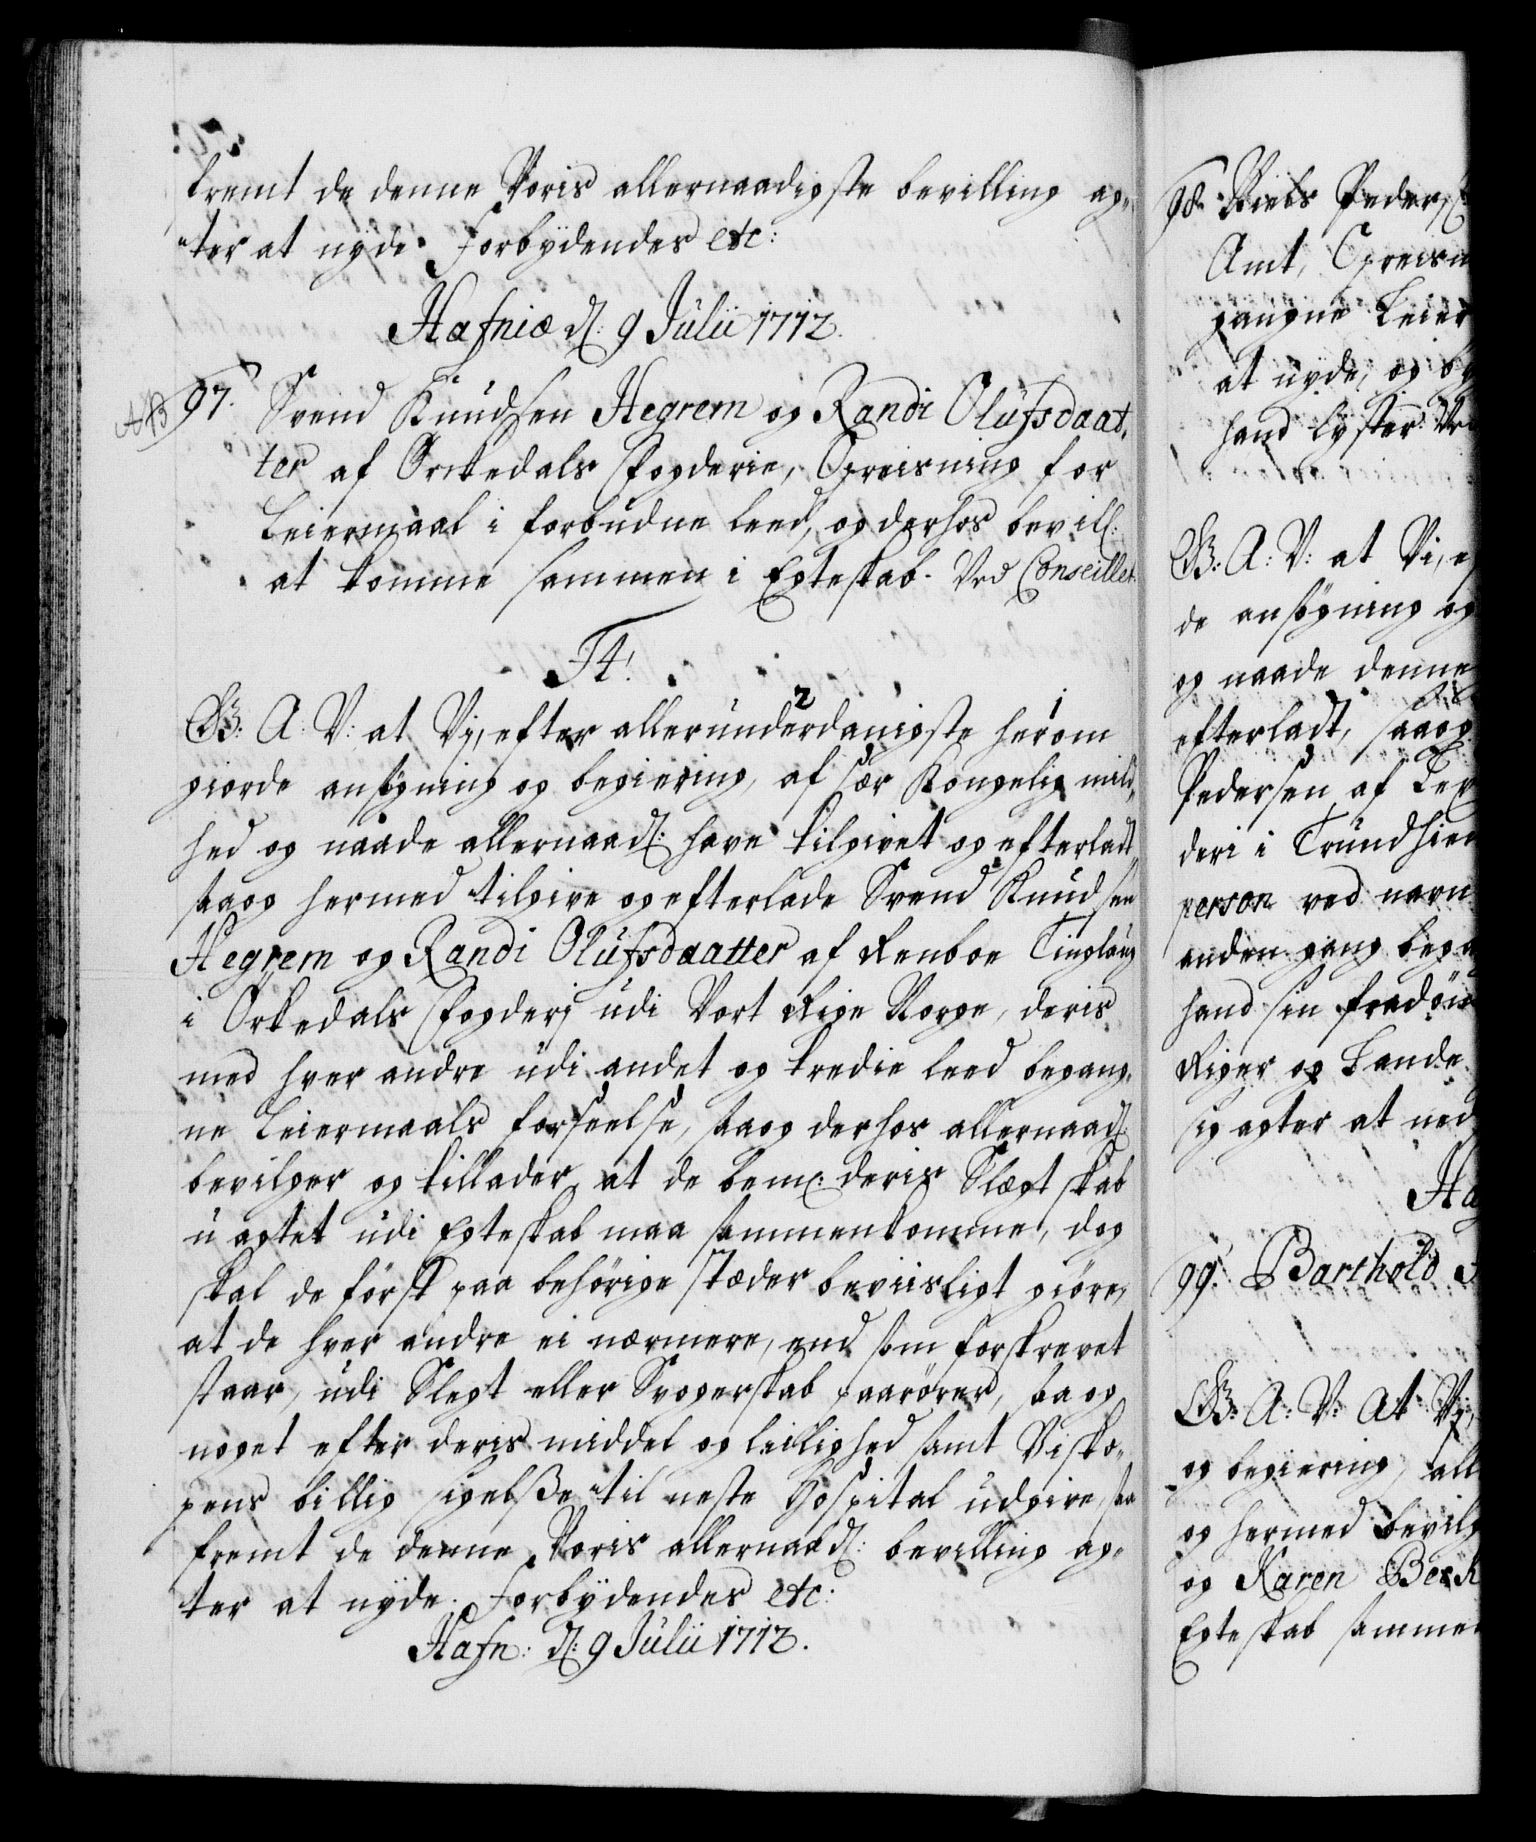 fremt de denne Voris allernaadigste bevilling ag-
ter at nyde. Forbydendes etc:
Hafniæ d: 9 Julii 1712.
97. Svend Knudsen Hegrem og Randi Olufsdaat,
ter af Orkedals Fogderie, Opreisning for
Leiermaal i forbudne leed, og derhos bevill:
at komme sammen i Egteskab. Ved Conseillet.
F4!
G: A: V: at Vi, efter allerunderdanigste herom
giorde ansøgning og begiering, af sær Kongelig mild,
hed og naade allernaad: have tilgivet og efterladt,
saa og hermed tilgive og efterlade Svend Knudsen
Hegrem og Randi Olufsdaatter af Renboe Tinglaug
i Orkedals Fogderj udi Vort Rige Norge, deris
med hver andre udi andet og tredie leed begang,
ne Leiermaals forseelse, saa og derhos allernaad:
bevilger og tillader, at de bem: deris Slægtskab
uagtet udi Egteskab maa sammenkomme, dog
skal de først paa behørige stæder beviisligt giøre,
at de hver andre ei nærmere, end som forskrevet
staar, udi Slegt eller Svogerskab paarører, saa og
noget efter deris middel og leilighed samt Bisko-
pens billig sigelße til neste Hospital udgive, saa
fremt de denne Voris allernaad: bevilling ag-
ter at nyde. Forbydendes etc:
Hafn: d: 9 Julii 1712.
98. Niels Peders
Amt, Opreisn
gangne Leier
at nyde, og
hand lyster. Ved
G: A: V: at Vi, e
de ansøgning og
og naade denne
efterladt, saa og
Pedersen af Lex
deri i Trundhiem
person ved navn
anden gang bega
hand sin
Riger og Lande
sig agter at ned
Ha
99. Barthold
G: A: V: At Vi,
og begiering, all
og hermed bevilg
og Karen Beck
Egteskab sammen